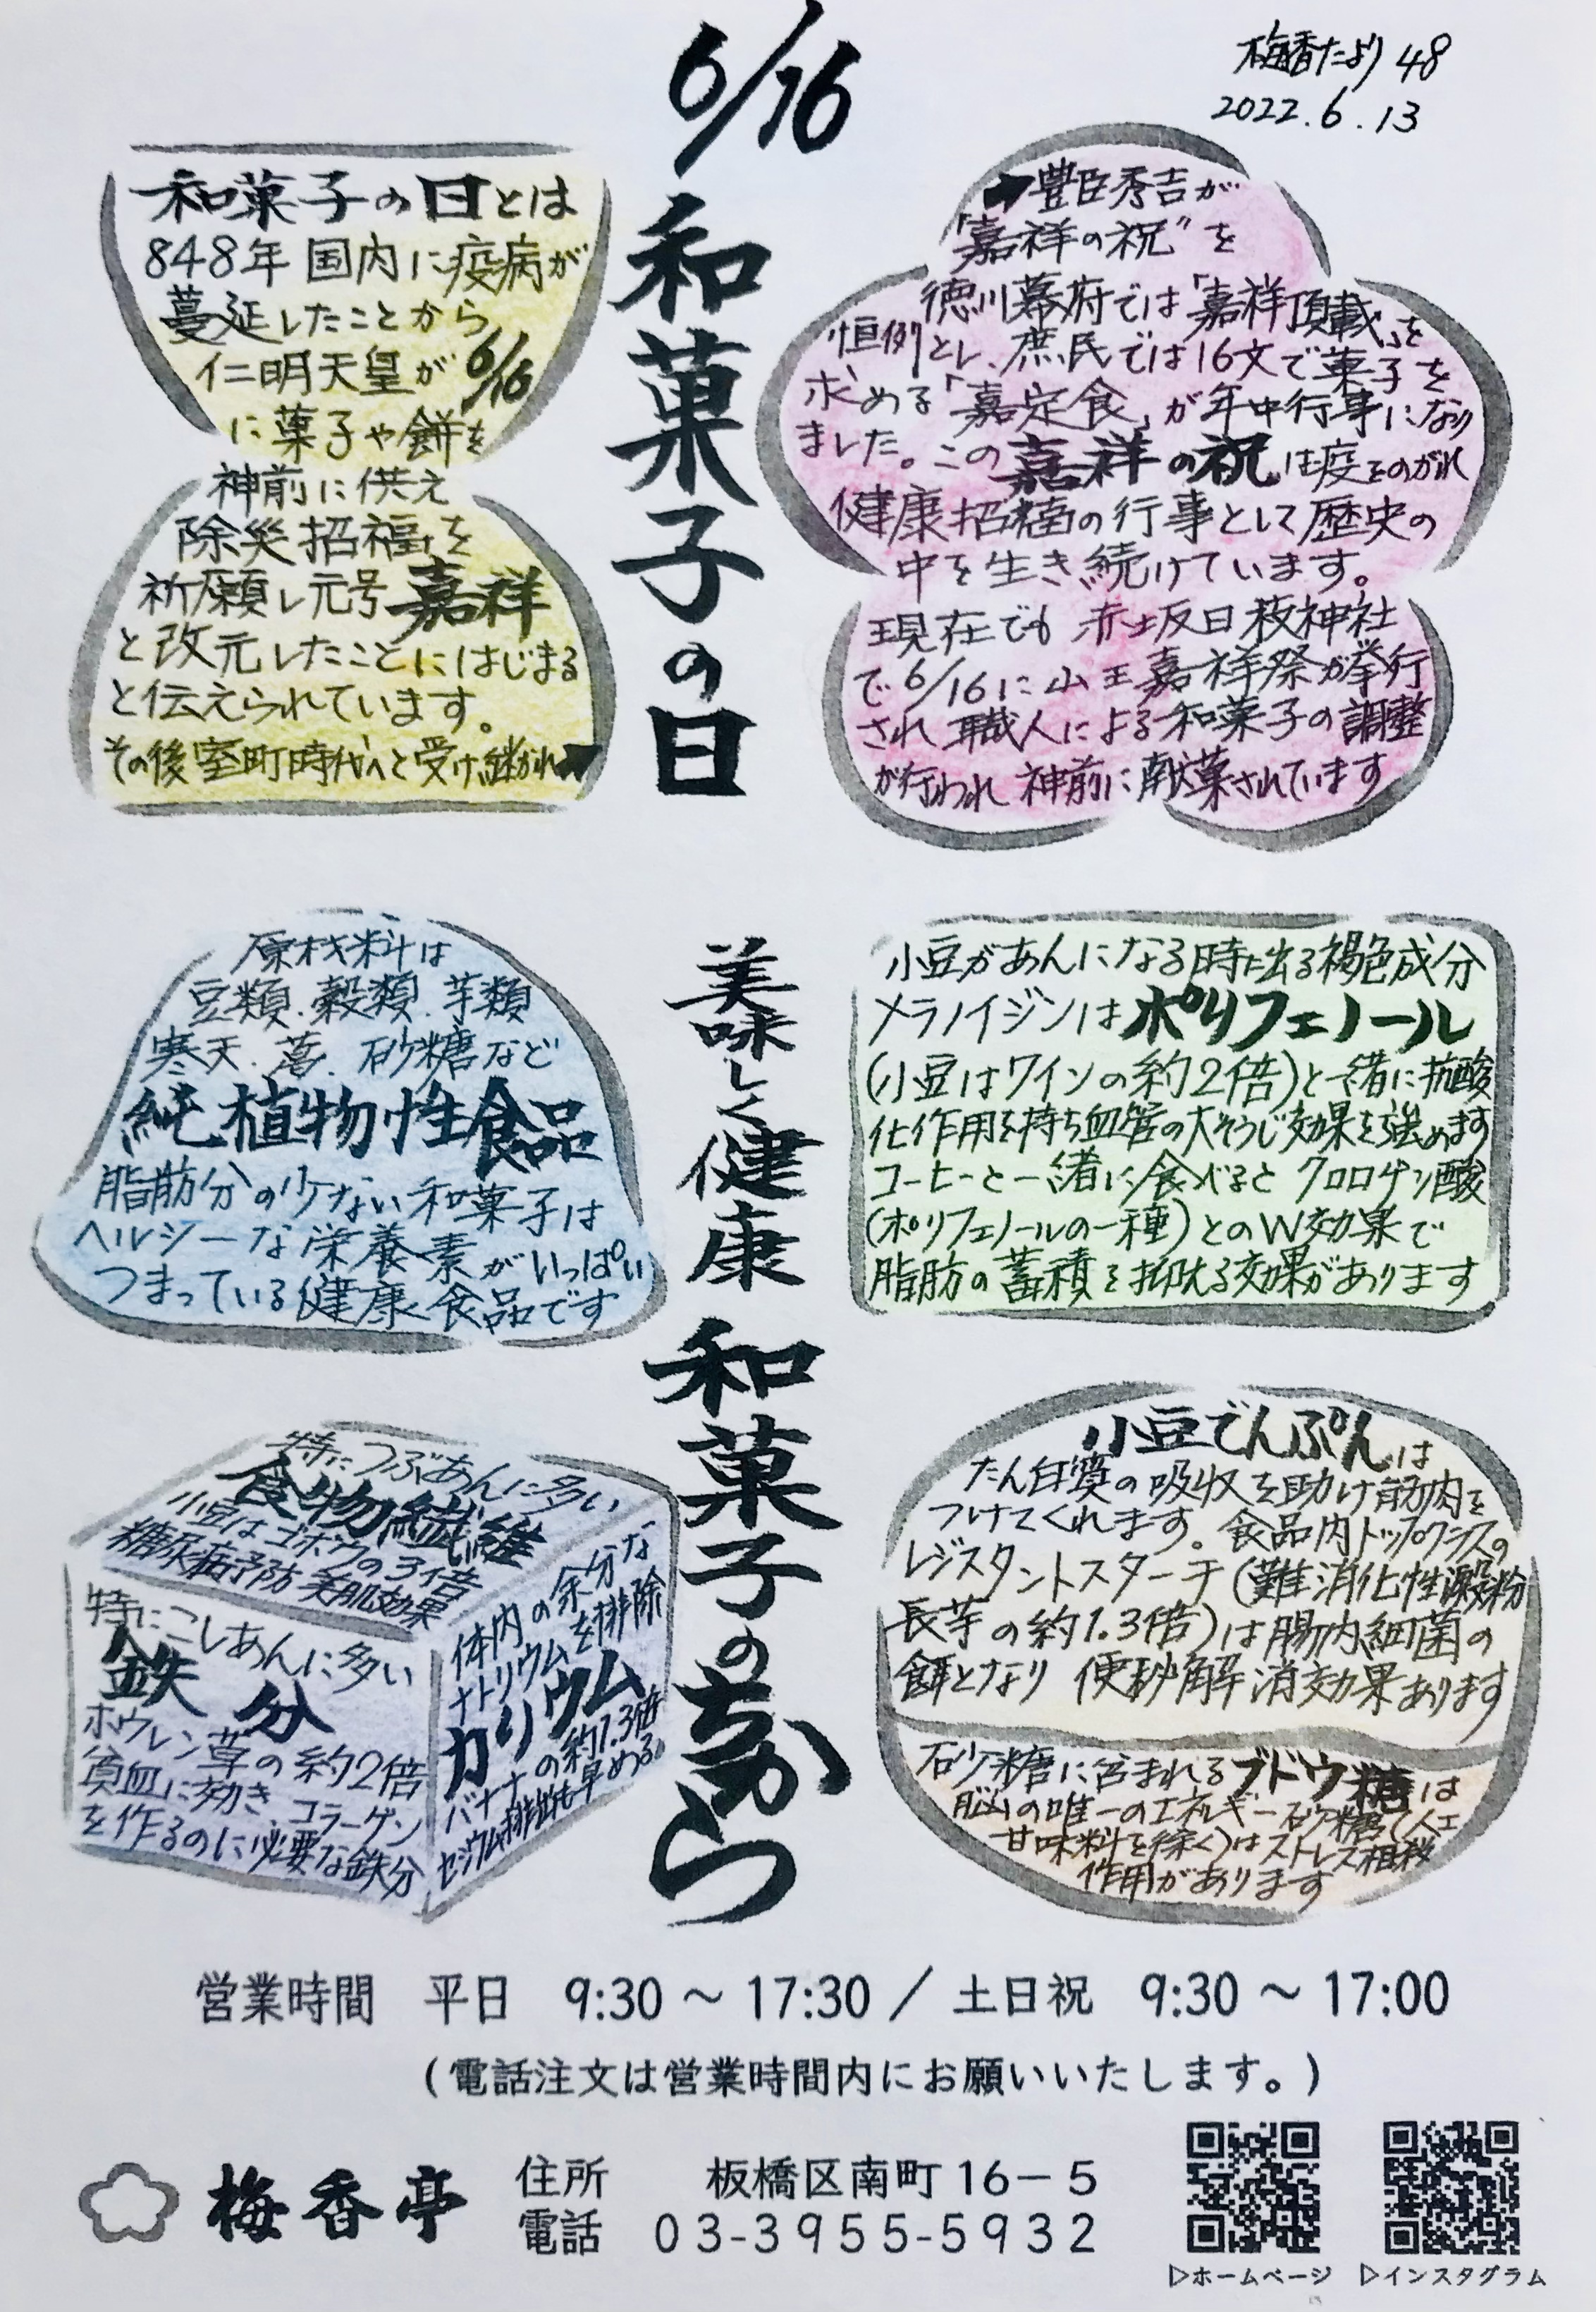 梅香たより 48
2022.6.13
6/16
和菓子の日
和菓子の日とは
848年 国内に疫病が
蔓延したことから
仁明天皇が6/16
に菓子や餅を
神前に供え
除災招福を
祈願し元号嘉祥
と改元したことにはじまる
と伝えられています。
その後室町時代へと受け継がれ➡
➡豊臣秀吉が
"嘉祥の祝"を
徳川幕府では「嘉祥頂戴」を
恒例とし、庶民では16文で菓子を
求める「嘉定食」が年中行事になり
ました。この嘉祥の祝は疫をのがれ
健康招福の行事として歴史の
中を生き続けています。
現在でも 赤坂日枝神社
で6/16に山王嘉祥祭が挙行
され職人による和菓子の調整
が行われ神前に献菓されています
美味しく健康 和菓子のちから
原材料は
豆類.穀類.芋類
寒天.葛.砂糖など
純植物性食品
脂肪分の少ない和菓子は
ヘルシーな栄養素がいっぱい
つまっている健康食品です
小豆があんになる時に出る褐色成分
メラノイジンはポリフェノール
(小豆はワインの約2倍)と一緒に抗酸
化作用を持ち血管の大そうじ効果を強めます
コーヒーと一緒に食べると クロロゲン酸
(ポリフェノールの一種)とのW効果で
脂肪の蓄積を抑える効果があります
特につぶあんに多い
食物繊維
小豆はゴボウの3倍
糖尿病予防 美肌効果
特にこしあんに多い
鉄分
ホウレン草の約2倍
貧血に効き、コラーゲン
を作るのに必要な鉄分
体内の余分な
ナトリウムを排除
カリウム
バナナの約1.3倍
セシウム排出も早める。
小豆でんぷんは
たん白質の吸収を助け筋肉を
つけてくれます。食品内トップクラスの
レジスタントスターチ(難消化性澱粉
長芋の約1.3倍)は腸内細菌の
餌となり 便秘解消効果あります
砂糖に含まれるブドウ糖は
脳の唯一のエネルギー砂糖(人工
甘味料を徐く)はストレス相殺
作用があります
営業時間 平日 9:30 ～ 17:30 / 土日祝 9:30 ～ 17:00
(電話注文は営業時間内にお願いいたします。)
梅香亭
住所 板橋区南町16－5
電話 03-3955-5932
▷ホームページ ▷インスタグラム